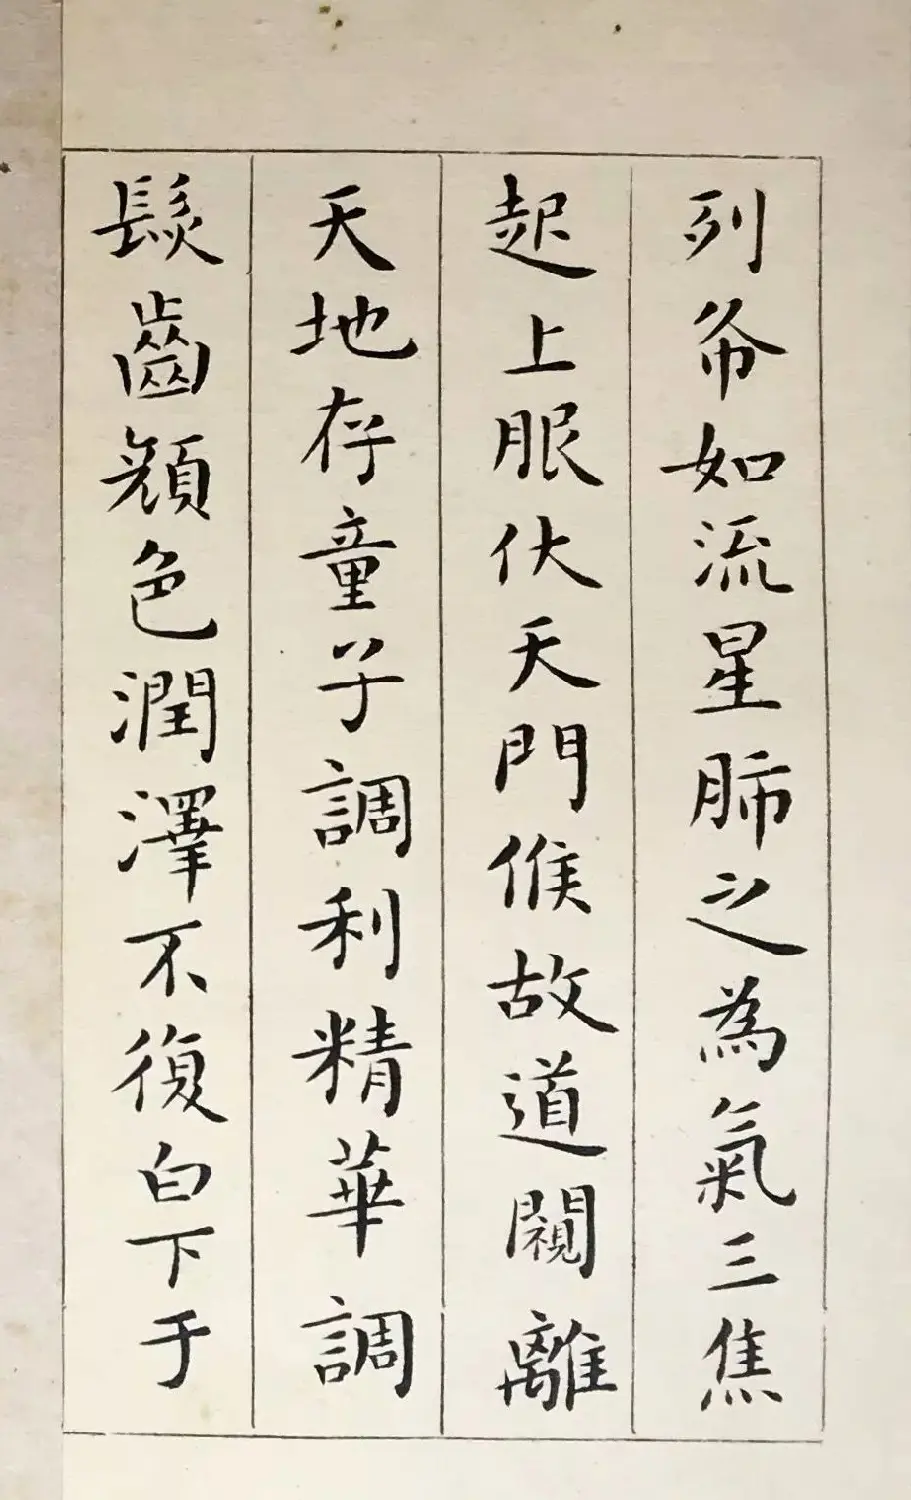 列布如流星肺之為氣三焦
起上服伏天門候故道闚離
天地存童子調利精華調
髮齒顏色潤澤不復白下于